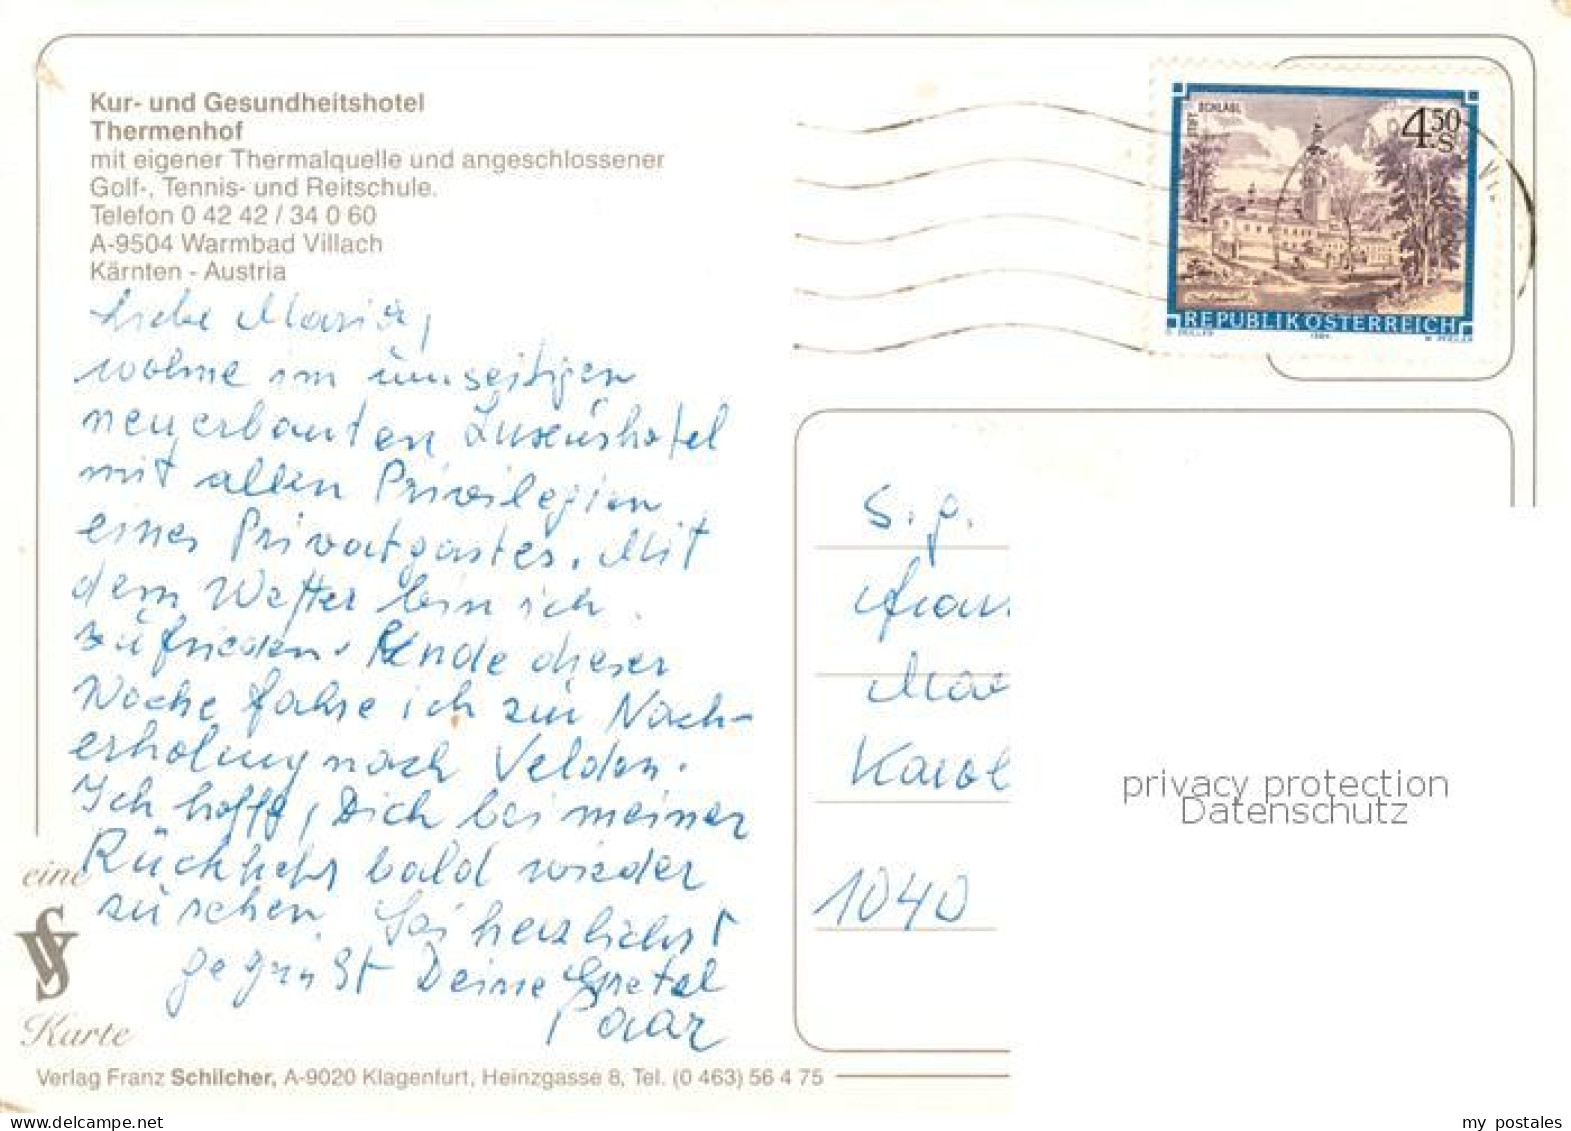 Kur- und Gesundheitshotel
Thermenhof
mit eigener Thermalquelle und angeschlossener
Golf-, Tennis- und Reitschule.
Telefon 0 42 42 / 34 0 60
A-9504 Warmbad Villach
Kärnten - Austria
Liebe Maria,
wohne im umseitigen
neuerbauten Luxushotel
mit allen Privilegien
eines Privatgastes. Mit
dem Wetter bin ich
zufrieden. Ende dieser
Woche fahre ich zur Nach-
erholung nach Velden.
Ich hoffe, Dich bei meiner
Rückkehr bald wieder
zu sehen. Sei herzlichst
gegrüßt Deine Gretel
Paar
eine
VS
Karte
Verlag Franz Schilcher, A-9020 Klagenfurt, Heinzgasse 8, Tel. (0 463) 56 4 75
STIFT SCHLÄGL
4.50
S
REPUBLIK ÖSTERREICH
1984
S. g.
Frau
Mar
Karol
1040
privacy protection
Datenschutz
my_postales